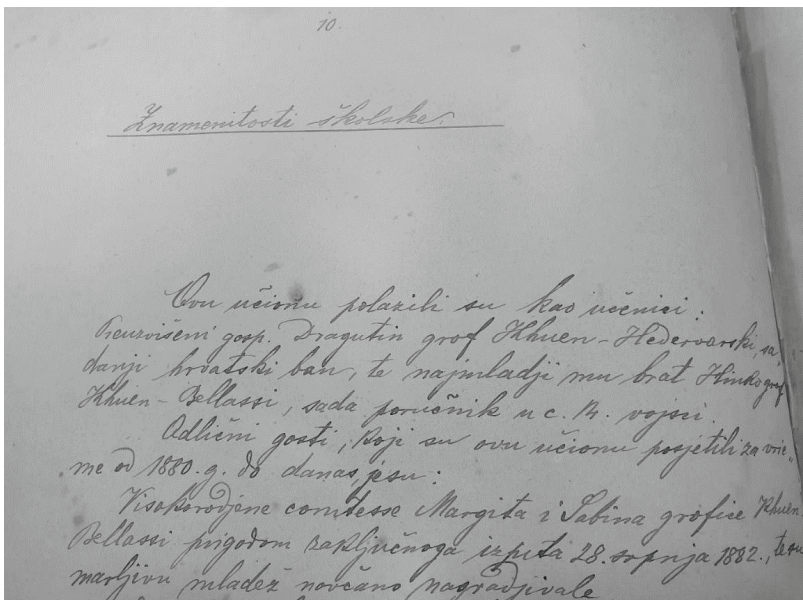 10.
Znamenitosti školske.
Ovu učionu polazili su kao učenici:
Preuzvišeni gosp. Dragutin grof Khuen-Hedervarski, sa-
danji hrvatski ban, te najmladji mu brat Hinko grof
Khuen-Bellassi, sada poručnik u c. kr. vojsci.
Odlični gosti, koji su ovu učionu posjetili za vrie-
me od 1880. g. do danas, jesu:
Visokorodjene comtesse Margita i Sabina grofice Khuen
Bellassi prigodom zaključnoga izpita 28. srpnja 1882., te su
marljivu mladež novčano nagradjivale